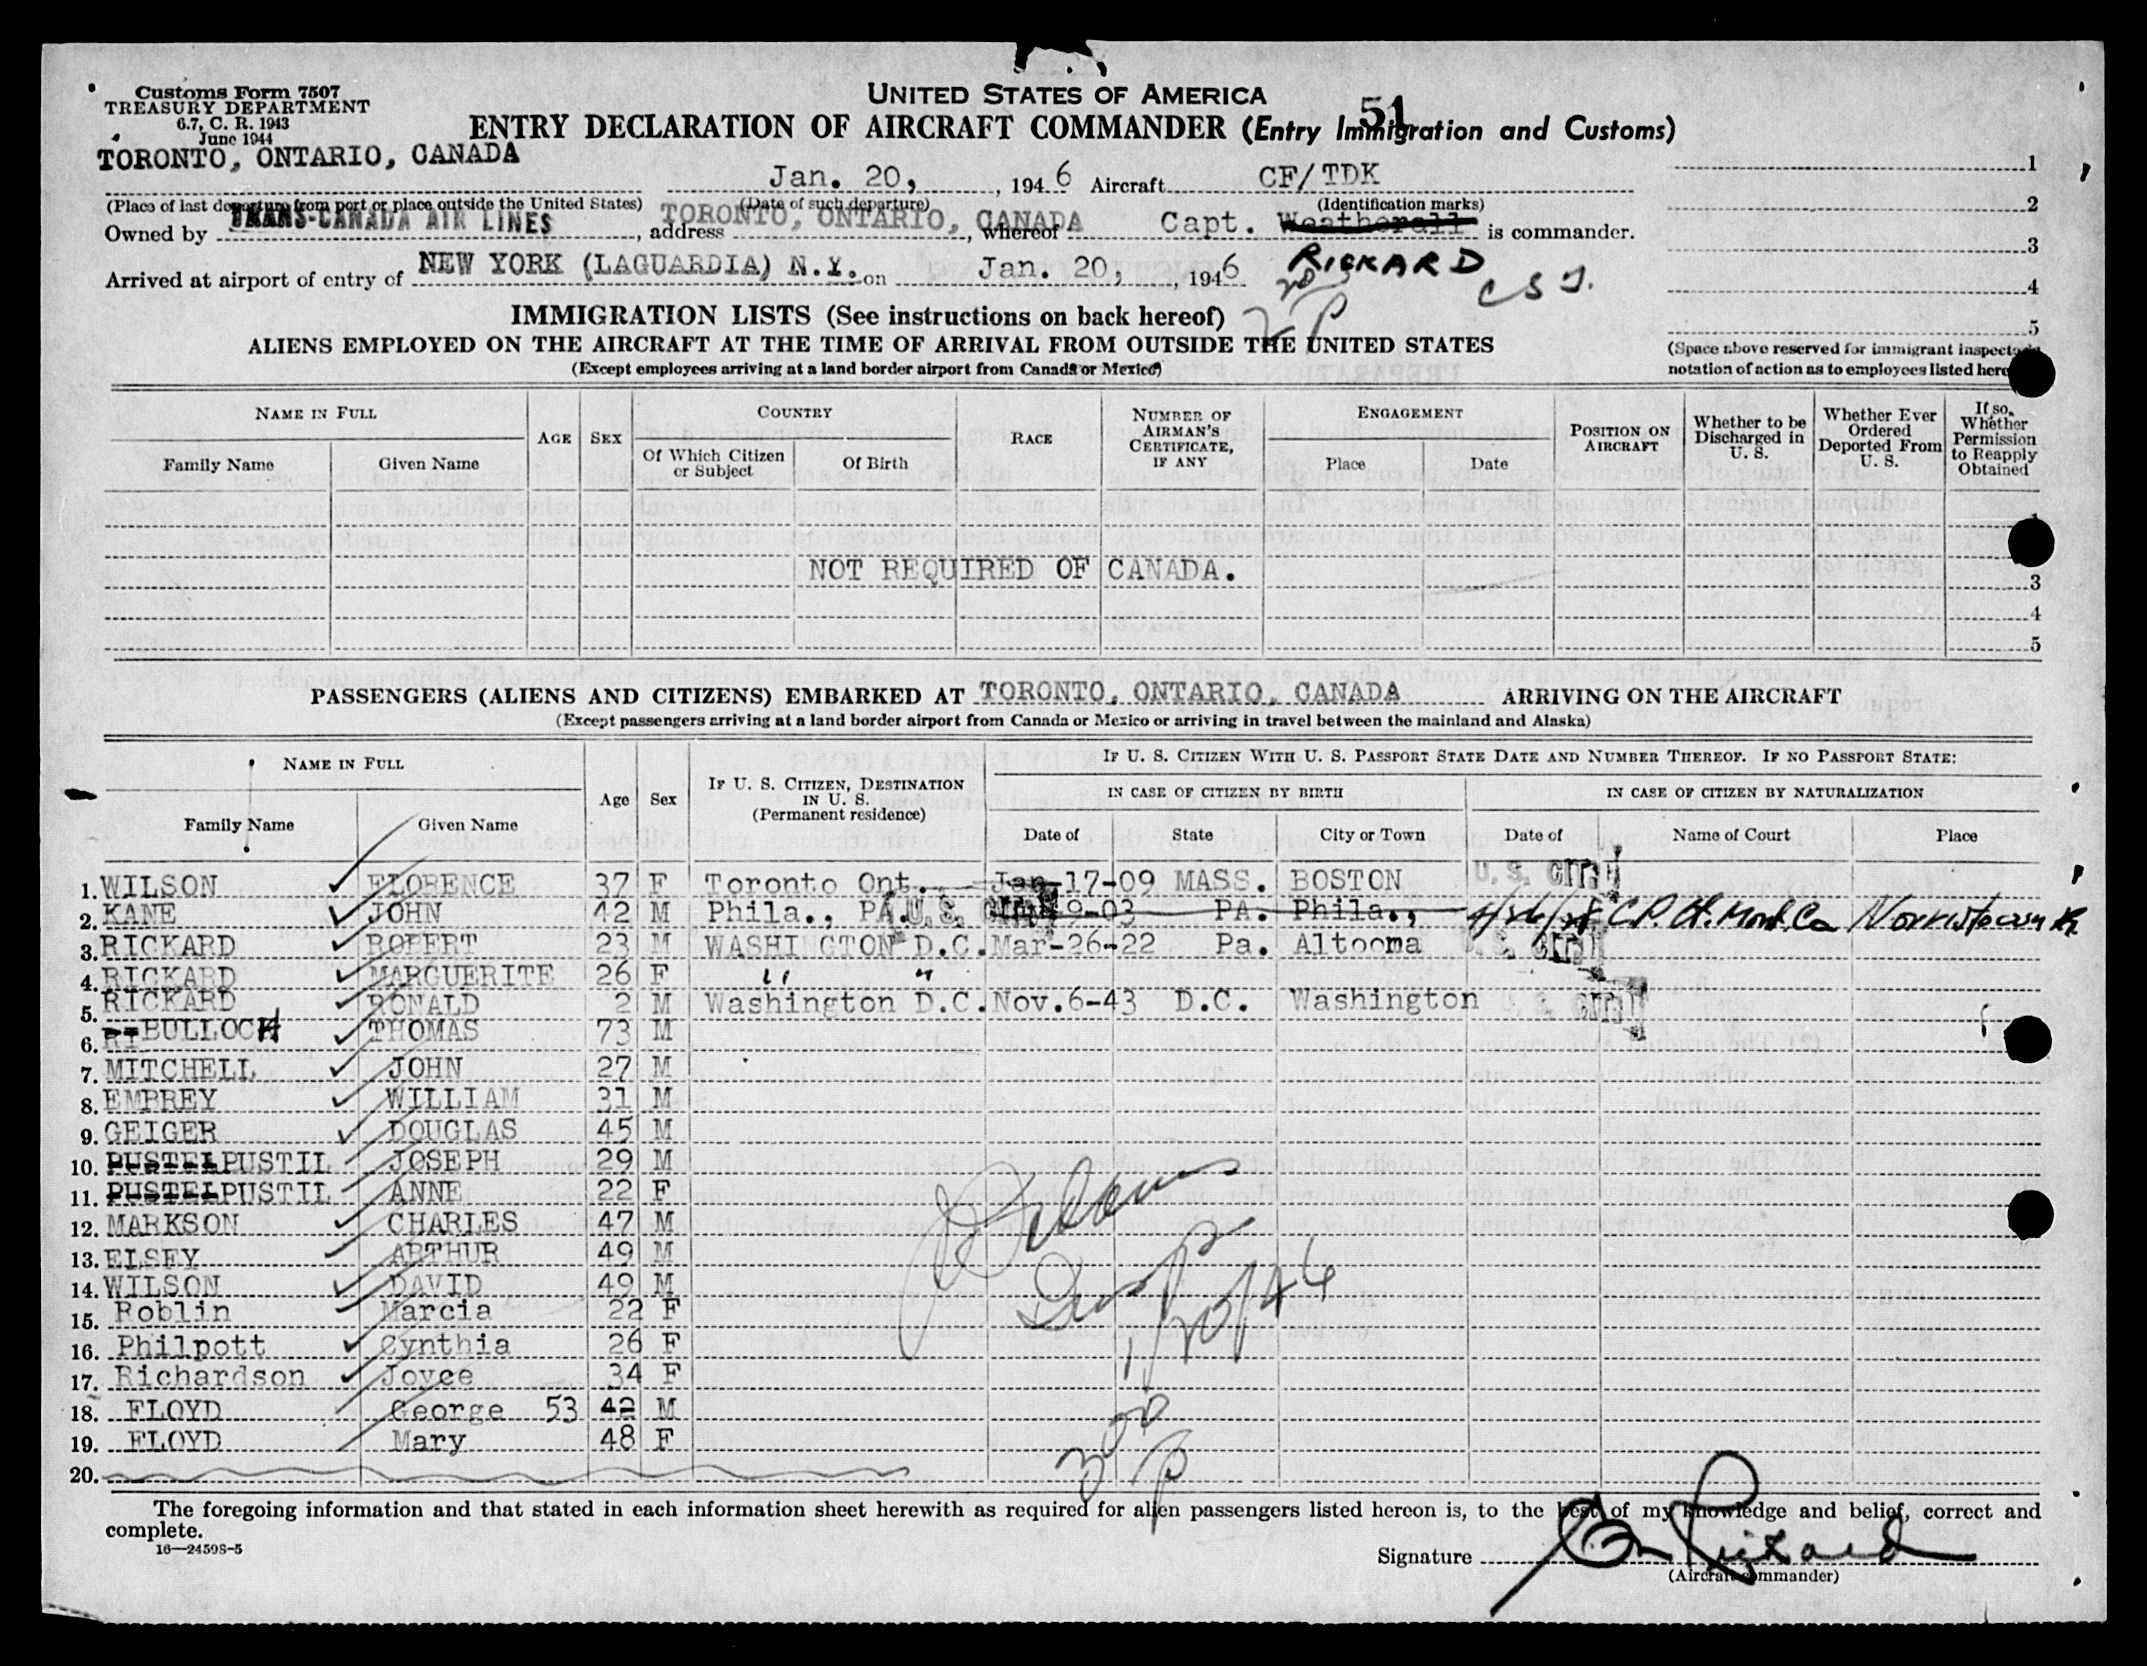 Customs Form 7507
TREASURY DEPARTMENT
6.7, C. R. 1943
June 1944
UNITED STATES OF AMERICA
51
ENTRY DECLARATION OF AIRCRAFT COMMANDER (Entry Immigration and Customs)
TORONTO, ONTARIO, CANADA
Jan. 20, , 1946 Aircraft CF/TDK
1
(Place of last departure from port or place outside the United States) (Date of such departure) (Identification marks)
2
Owned by TRANS-CANADA AIR LINES, address TORONTO, ONTARIO, CANADA, whereof Capt. Weatherall is commander.
3
Arrived at airport of entry of NEW YORK (LAGUARDIA) N.Y. on Jan. 20, , 1946 RICKARD
4
IMMIGRATION LISTS (See instructions on back hereof)
5
ALIENS EMPLOYED ON THE AIRCRAFT AT THE TIME OF ARRIVAL FROM OUTSIDE THE UNITED STATES
(Space above reserved for immigrant inspector's
(Except employees arriving at a land border airport from Canada or Mexico)
notation of action as to employees listed here
NAME IN FULL
Family Name Given Name
AGE SEX
COUNTRY
Of Which Citizen or Subject Of Birth
RACE
NUMBER OF AIRMAN'S CERTIFICATE, IF ANY
ENGAGEMENT
Place Date
POSITION ON AIRCRAFT
Whether to be Discharged in U. S.
Whether Ever Ordered Deported From U. S.
If so, Whether Permission to Reapply Obtained
1
NOT REQUIRED OF CANADA.
3
4
5
PASSENGERS (ALIENS AND CITIZENS) EMBARKED AT TORONTO, ONTARIO, CANADA ARRIVING ON THE AIRCRAFT
(Except passengers arriving at a land border airport from Canada or Mexico or arriving in travel between the mainland and Alaska)
NAME IN FULL
Family Name Given Name
Age Sex
IF U. S. CITIZEN, DESTINATION IN U. S. (Permanent residence)
IF U. S. CITIZEN WITH U. S. PASSPORT STATE DATE AND NUMBER THEREOF. IF NO PASSPORT STATE:
IN CASE OF CITIZEN BY BIRTH IN CASE OF CITIZEN BY NATURALIZATION
Date of State City or Town Date of Name of Court Place
1. WILSON FLORENCE 37 F Toronto Ont. Jan-17-09 MASS. BOSTON U. S. CIT
2. KANE JOHN 42 M Phila., PA. U. S. 9-03 PA. Phila., C.P. Ct. Mont. Co Norristown Pa
3. RICKARD ROBERT 23 M WASHI GTON D.C. Mar-26-22 Pa. Altoona
4. RICKARD MARGUERITE 26 F " "
5. RICKARD RONALD 2 M Washington D.C. Nov.6-43 D.C. Washington
6. BULLOCH THOMAS 73 M
7. MITCHELL JOHN 27 M
8. EMBREY WILLIAM 31 M
9. GEIGER DOUGLAS 45 M
10. PUSTEL PUSTIL JOSEPH 29 M
11. PUSTEL PUSTIL ANNE 22 F
12. MARKSON CHARLES 47 M
13. ELSEY ARTHUR 49 M
14. WILSON DAVID 49 M
15. Roblin Marcia 22 F
16. Philpott Cynthia 26 F
17. Richardson Joyce 34 F
18. FLOYD George 53 42 M
19. FLOYD Mary 48 F
20.
1/20/46
The foregoing information and that stated in each information sheet herewith as required for alien passengers listed hereon is, to the best of my knowledge and belief, correct and
complete.
16—24598-5
Signature Rickard
(Aircraft commander)